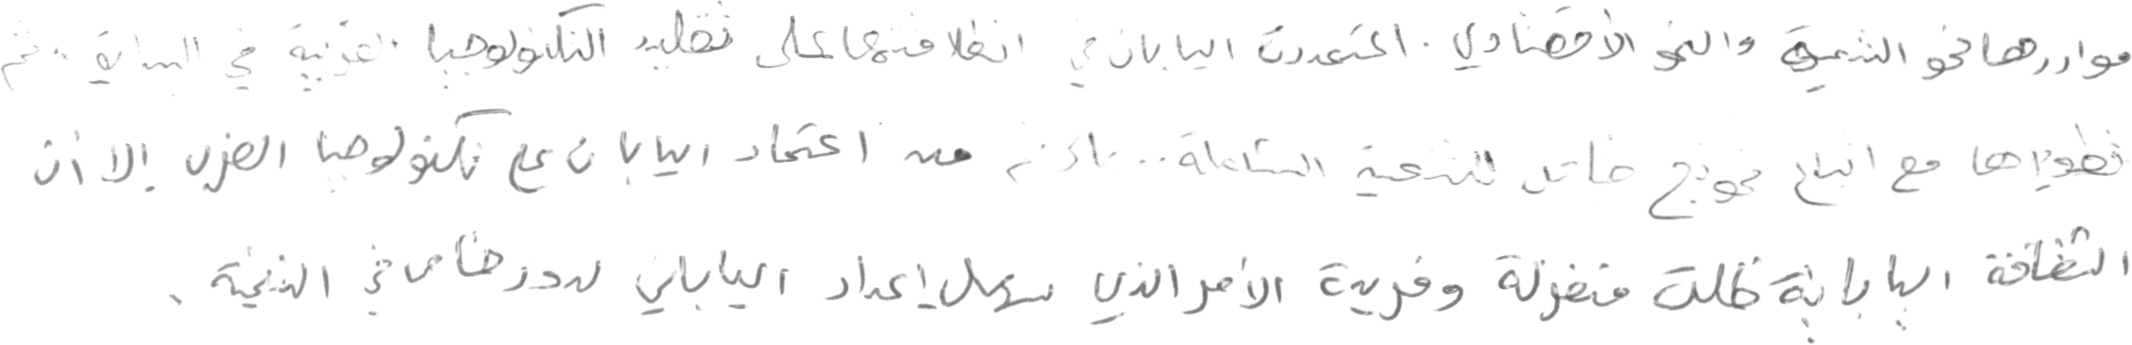 مواردها نحو التنمية والنمو الأقتصادي. اعتمدت اليابان في انطلاقتها على تقليد التكنولوجيا الغربية في البداية، ثم
تطويرها مع اتباع نموذج خاص للتنمية الشاملة.. بالرغم من اعتماد اليابان على تكنولوجيا الغرب إلا أن
الثقافة اليابانية ظلت منعزلة وفريدة الأمر الذي سهل إعداد الياباني لدور خاص في التنمية.